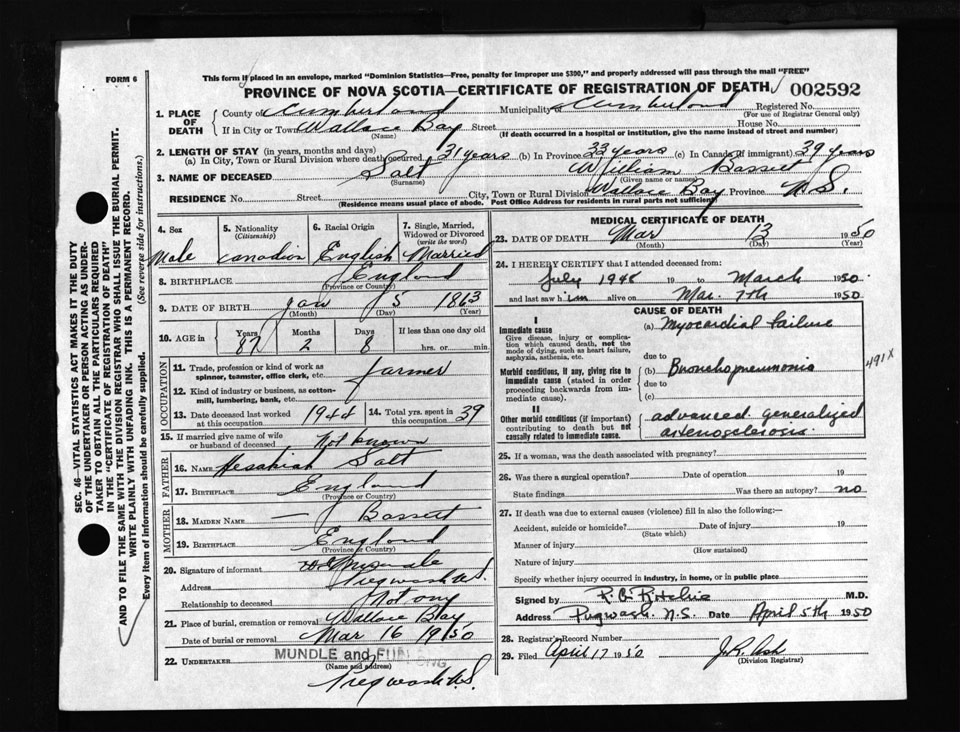 FORM 6
This form if placed in an envelope, marked "Dominion Statistics—Free, penalty for improper use $300," and properly addressed will pass through the mail "FREE"
PROVINCE OF NOVA SCOTIA—CERTIFICATE OF REGISTRATION OF DEATH 002592
SEC. 46—VITAL STATISTICS ACT MAKES IT THE DUTY
OF THE UNDERTAKER OR PERSON ACTING AS UNDER-
TAKER TO OBTAIN ALL THE PARTICULARS REQUIRED
IN THE "CERTIFICATE OF REGISTRATION OF DEATH"
AND TO FILE THE SAME WITH THE DIVISION REGISTRAR WHO SHALL ISSUE THE BURIAL PERMIT.
WRITE PLAINLY WITH UNFADING INK. THIS IS A PERMANENT RECORD.
Every item of information should be carefully supplied. (See reverse side for instructions.)
1. PLACE OF DEATH
County of Cumberland Municipality Cumberland Registered No.
(For use of Registrar General only)
If in City or Town Wallace Bay Street House No.
(Name) (If death occurred in a hospital or institution, give the name instead of street and number)
2. LENGTH OF STAY (in years, months and days)
(a) In City, Town or Rural Division where death occurred 31 years (b) In Province 33 years (c) In Canada (if immigrant) 39 years
3. NAME OF DECEASED Salt William Bassett
(Surname) (Given name or names)
RESIDENCE No. Street City, Town or Rural Division Wallace Bay Province N.S.
(Residence means usual place of abode. Post Office Address for residents in rural parts not sufficient)
4. Sex 5. Nationality (Citizenship) 6. Racial Origin 7. Single, Married, Widowed or Divorced (write the word)
Male Canadian English Married
8. BIRTHPLACE England
(Province or Country)
9. DATE OF BIRTH Jan 5 1863
(Month) (Day) (Year)
10. AGE in Years Months Days If less than one day old
87 2 8 hrs. or min.
OCCUPATION
11. Trade, profession or kind of work as spinner, teamster, office clerk, etc. farmer
12. Kind of industry or business, as cotton-mill, lumbering, bank, etc.
13. Date deceased last worked at this occupation 1944 14. Total yrs. spent in this occupation 39
15. If married give name of wife or husband of deceased Not known
FATHER
16. NAME Hesakiah Salt
17. BIRTHPLACE England
(Province or Country)
MOTHER
18. MAIDEN NAME — Bassett
19. BIRTHPLACE England
(Province or Country)
20. Signature of informant
Address Pugwash N.S.
Relationship to deceased Not any
21. Place of burial, cremation or removal Wallace Bay
Date of burial or removal Mar 16 1950
22. UNDERTAKER MUNDLE and
(Name and address)
Pugwash N.S.
MEDICAL CERTIFICATE OF DEATH
23. DATE OF DEATH Mar 13 1950
(Month) (Day) (Year)
24. I HEREBY CERTIFY that I attended deceased from
July 1948 19 to March 1950
and last saw him alive on Mar. 7th 1950
CAUSE OF DEATH
I
Immediate cause (a) Myocardial failure
Give disease, injury or complication which caused death, not the mode of dying, such as heart failure, asphyxia, asthenia, etc.
due to
Morbid conditions, if any, giving rise to immediate cause (stated in order proceeding backwards from immediate cause). (b) Bronchopneumonia 491X
due to
(c)
II
Other morbid conditions (if important) contributing to death but not causally related to immediate cause. advanced generalized
arteriosclerosis.
25. If a woman, was the death associated with pregnancy?
26. Was there a surgical operation? Date of operation 19
State findings Was there an autopsy? no
27. If death was due to external causes (violence) fill in also the following:—
Accident, suicide or homicide? Date of injury 19
(State which)
Manner of injury
(How sustained)
Nature of injury
Specify whether injury occurred in industry, in home, or in public place
Signed by R. B. Ritchie M.D.
Address Pugwash, N.S. Date April 5th 1950
28. Registrar's Record Number
29. Filed April 17 1950 J.R. Ash
(Division Registrar)